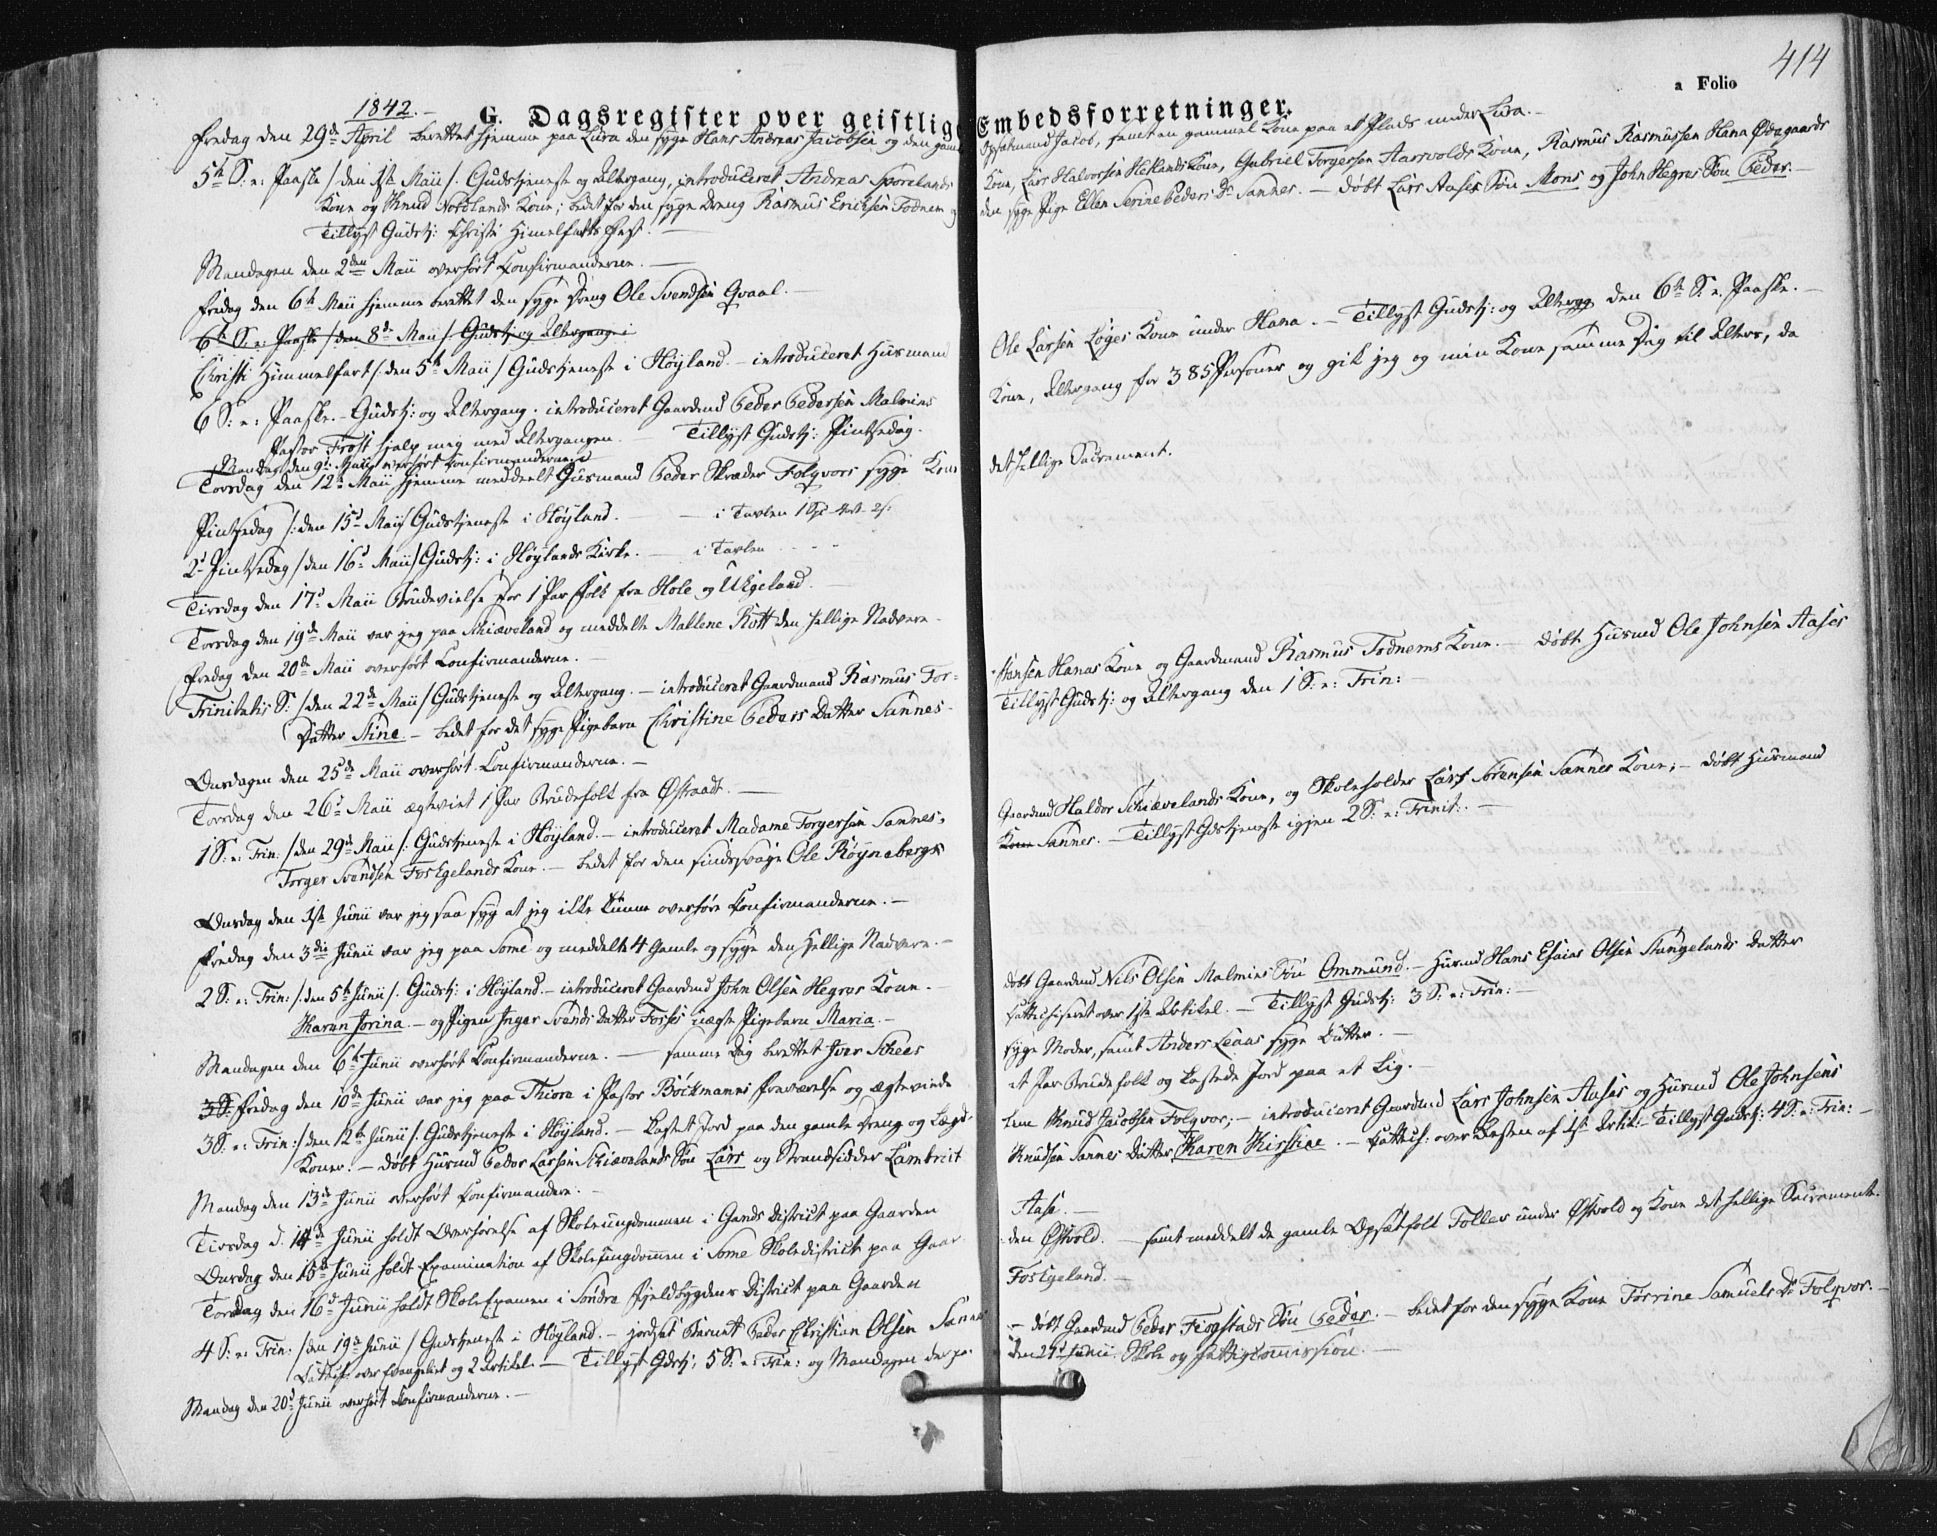 414
a Folio
1842.-
G. Dagsregister over geistlige Embedsforretninger.
Fredag den 29de April berettet hjemme paa Lura den syge Hans Andreas Jacobsen og den gamle Opsatmand Jacob, samt en gammel Kone paa et Plads under Lura.-
5te S: e: Paaske /: den 1ste Maii /. Gudstjeneste og Altergang, introduceret Andreas Sporelands Kone, Lars Halvorsen Hetlands Kone, Gabriel Torgersen Aarvolds Kone, Rasmus Rasmussen Hana Ødegaards
Kone og Knud Nordlands Kone; bedet for den syge Dreng Rasmus Ericksen Todnem og den syge Pige Ellen Serine Peders Dr Sannes. - døbt Lars Aases Søn Mons og John Hegres Søn Peder.-
Tillyst Gudstj: Christi Himelfarts Fest.-
Mandagen den 2den Maii overhørt Confirmanderne.-
Fredag den 6te Maii hjemme berettet den syge Dreng Ole Svendsen Qvaal.-
6te S. e: Paaske /: den 8de Maii /. Gudstj: og Altergang i
Christi Himmelfart /: den 5te Maii / Gudstjeneste i Høyland - introduceret Husmand Ole Larsen Løges Kone under Hana.- Tillyst Gudstj: og Altergg den 6te S. e. Paaske.-
6 S: e: Paaske.- Gudstj: og Altergang. introduceret Gaardmd Peder Pedersen Malmins Kone, Altergang for 385 Personer og gik jeg og min Kone samme Dag til Alters, da
Pastor Frost hjalp meg med Altergangen.- Tillyst Gudstj: Pintsedag.
Mandag den 9de Maii overhørt Confirmanderne.
Torsdag den 12te Maii hjemme meddeelt Huusmand Peder Skreder Folqvors syge Kone det hellige Sacrament.
Pintsedag /: den 15d Maii / Gudstjeneste i Høyland.- - i Tavlen 1
2d Pintsedag / den 16d Maii / Gudstj: i Høylands Kirke.- i Tavlen
Tirsdag den 17d Maii Brudevielse for 1 Par Folk fra Hole og Uligeland.-
Torsdag den 19de Maii var jeg paa Skiæveland og meddelte Mallene Rott den hellige Nadvere.
Fredag den 20de Maii overhørt Confirmanderne.-
Trinitatis S: / den 22de Maii / Gudstjeneste og Altergang.- introduceret Gaardmand Rasmus Tor= Hansen Hanas Kone og Gaardmand Rasmus Todnems Kone.- døbt Husmd Ole Johnsen Aases
Datter Stine.- bedet for det syge Pigebarn Christine Peders Datter Sannes- Tillyst Gudstj: og Altergang den 1 S: e: Trin:-
Onsdagen den 25de Maii overhørt Confirmanderne.-
Torsdag den 26d Maii ægteviet 1 Par Brudefolk fra Østraadt.-
1 S: e: Trin: / den 29de Maii /. Gudstjeneste i Høyland.- introduceret Madame Torgersen Sannes, Gaardmd Haldor Schiævelands Kone, og Skoleholder Lars Sørensen Sannes Kone;- døbt Husmand
Torger Svendsen Foss Egelands Kone.- bedet for den sindssvage Ole Røynebergs Kone Sannes.- Tillyst Gdstjeneste igjen 2 S: e: Trinit:.-
Onsdag den 1ste Junii var jeg saa syg at jeg ikke kunne overhøre Confirmanderne.-
Fredag den 3die Junii var jeg paa Some og meddelte 4 Gamle og syge den Hellige Nadvere.-
2 S: e: Trin: /: den 5te Junii /. Gudstj: i Høyland.- introduceret Gaardmd John Olsen Hegres Kone.- døbt Gaardmd Nils Olsen Malmins Søn Ommund.- Husmd Hans Esaias Olsen Stangelands Datter
Karen Jorina - og Pigen Inger Svends Datter Fosses uægte Pigebarn Maria.- Cattechiseret over 1ste Artikel.- Tillyst Gudstj: 3 S: e: Trin:-
Mandagen den 6te Junii overhørt Confirmanderne.- samme Dag berettet Iver Schees syge Moder, samt Anders Leaas syge Datter.-
3 S: Fredag den 10de Junii var jeg paa Thiora i Pastor Böckmanns fraværelse og ægteviede et Par Brudefolk og kastede Jord paa et Lig.-
3 S: e: Trin: /: den 12te Junii /: Gudstjeneste i Høyland.- Kastet Jord paa den gamle Dreng og Lægd= lem Knud Jacobsen Folqvor;- introduceret Gaardmd Lars Johnsen Aases og Husmd Ole Johnsens
Koner.- døbt Husmd Peder Larsen Schiævelands Søn Lars og Strandsidder Lambricht Knudsen Sannes Datter Karen Kirstine.- Cattech: over Resten af 1ste Artik:- Tillyst Gudstj: 4 S: e: Trin:-
Mandag den 13de Junii overhørt Confirmandere.-
Tirsdag d. 14de Junii holdt Overhørelse af Skoleungdommen i Gands District paa Gaarden Aase.-
Onsdag den 15de Junii holdt Examination af Skoleungdomen i Some Skoledistrict paa Gaar= den Østvold.- samt meddelt de gamle Opsætfolk Toller under Østvold og Kone det hellige Sacramente.
Torsdag den 16d Junii holdt Skole Examen i Søndre Fjeldbygdens District paa Gaarden Fos Egeland.-
4 S: e: Trin: / den 19de Junii / Gudstjeneste i Høyland.- jordset Barnet Peder Christian Olsen Sannes - døbt Gaardmd Peder Tiogstads Søn Peder.- bedet for den syge Kone Torrine Samuels Dr Folqvor.-
Cattech: over Evangeliet og 2 Artikel.- Tillyst Gdstj: 5 S: e: Trin: og Mandagen derpaa den 27d Junii Skole og Fattigcommission.-
Mandag den 20d Junii overhørt Confirmanderne.-